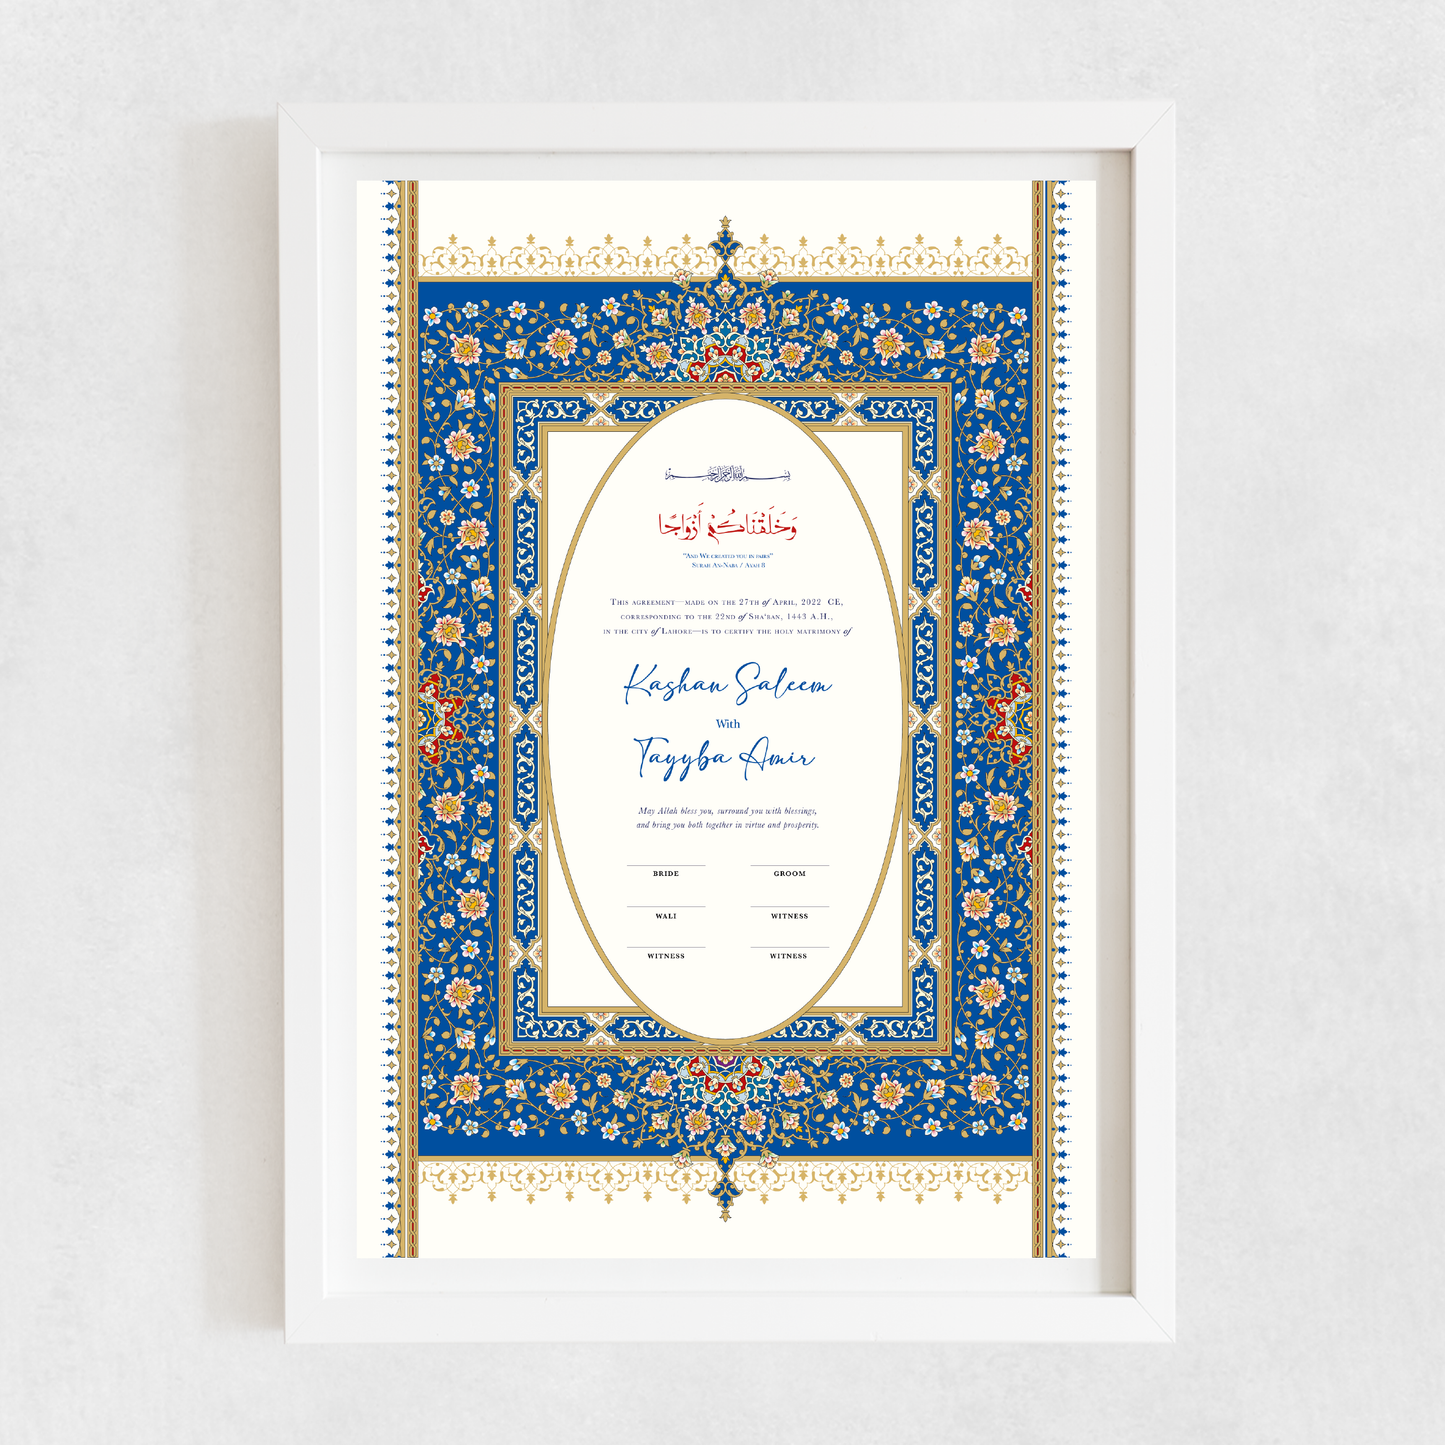 بسم الله الرحمن الرحيم
وَخَلَقْنَاكُمْ أَزْوَاجًا
"And We created you in pairs"
Surah An-Naba / Ayah 8
This agreement—made on the 27th of April, 2022 CE,
corresponding to the 22nd of Sha'ban, 1443 A.H.,
in the city of Lahore—is to certify the holy matrimony of
Kashan Saleem
With
Tayyba Amir
May Allah bless you, surround you with blessings,
and bring you both together in virtue and prosperity.
BRIDE GROOM
WALI WITNESS
WITNESS WITNESS